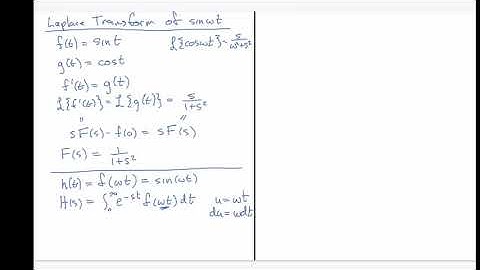 Laplace Transform of sinωt
f(t) = sint
L{cosωt} = s/(ω²+s²)
g(t) = cost
f'(t) = g(t)
L{f'(t)} = L{g(t)} = s/(1+s²)
" "
sF(s) - f(0) = sF(s)
F(s) = 1/(1+s²)
h(t) = f(ωt) = sin(ωt)
H(s) = ∫₀^∞ e^(-st) f(ωt) dt u = ωt
du = ωdt